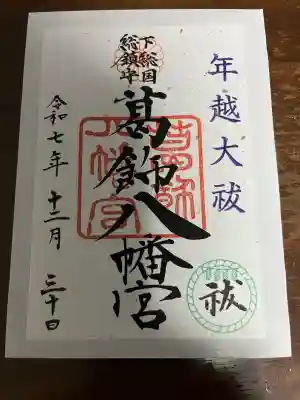 年越大祓
下総国
総鎮守
葛飾八幡宮
令和七年 十二月 三十日
祓